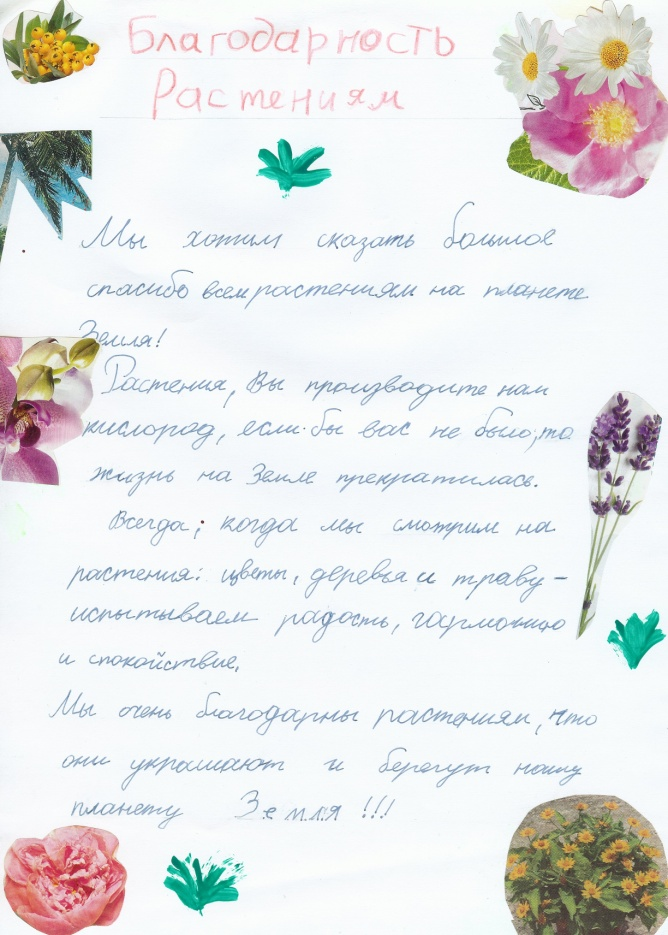 Благодарность
Растениям
Мы хотим сказать большое
спасибо всем растениям на планете
Земля!
Растения, Вы производите нам
кислород, если бы вас не было, то
жизнь на Земле прекратилась.
Всегда, когда мы смотрим на
растения: цветы, деревья и траву-
испытываем радость, гармонию
и спокойствие.
Мы очень благодарны растениям, что
они украшают и берегут нашу
планету Земля!!!